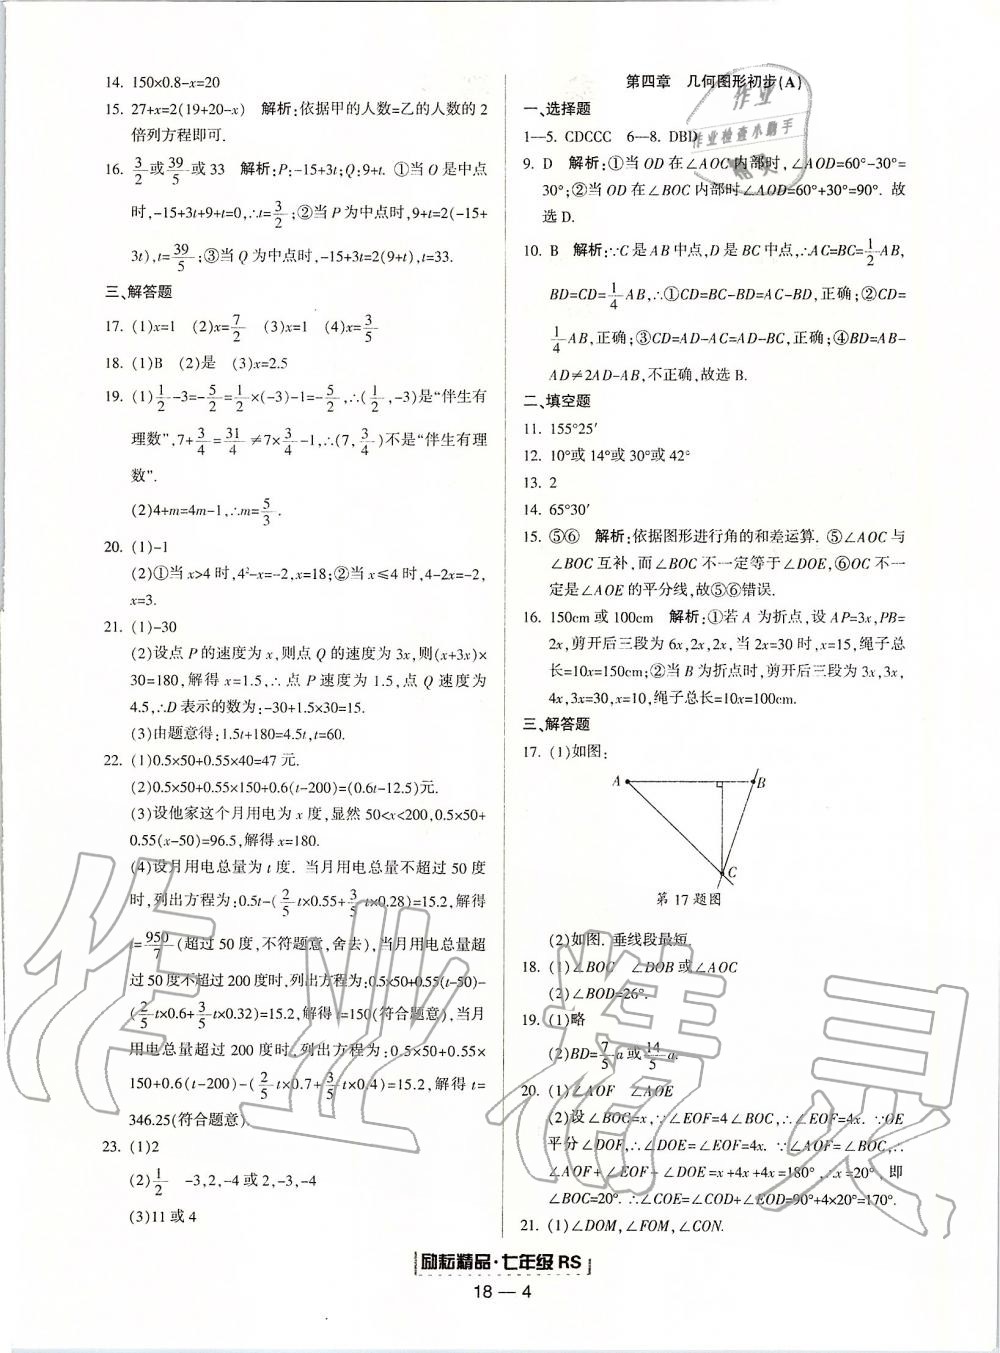 14. 150×0.8-x=20
15. 27+x=2(19+20-x) 解析:依据甲的人数=乙的人数的2
倍列方程即可.
16. 3/2或39/5或33 解析:P:-15+3t;Q:9+t. ①当O是中点
时,-15+3t+9+t=0,∴t=3/2;②当P为中点时,9+t=2(-15+
3t),t=39/5;③当Q为中点时,-15+3t=2(9+t),t=33.
三、解答题
17. (1)x=1 (2)x=7/2 (3)x=1 (4)x=3/5
18. (1)B (2)是 (3)x=2.5
19. (1)1/2-3=-5/2=1/2×(-3)-1=-5/2,∴(1/2,-3)是“伴生有
理数”,7+3/4=31/4≠7×3/4-1,∴(7,3/4)不是“伴生有理
数”.
(2)4+m=4m-1,∴m=5/3.
20. (1)-1
(2)①当x>4时,4²-x=-2,x=18;②当x≤4时,4-2x=-2,
x=3.
21. (1)-30
(2)设点P的速度为x,则点Q的速度为3x,则(x+3x)×
30=180,解得x=1.5,∴点P速度为1.5,点Q速度为
4.5,∴D表示的数为:-30+1.5×30=15.
(3)由题意得:1.5t+180=4.5t,t=60.
22. (1)0.5×50+0.55×40=47元.
(2)0.5×50+0.55×150+0.6(t-200)=(0.6t-12.5)元.
(3)设他家这个月用电为x度,显然50<x<200,0.5×50+
0.55(x-50)=96.5,解得x=180.
(4)设月用电总量为t度. 当月用电总量不超过50度
时,列出方程为:0.5t-(2/5t×0.55+3/5t×0.28)=15.2,解得
t=950/7(超过50度,不符题意,舍去),当月用电总量超
过50度不超过200度时,列出方程为:0.5×50+0.55(t-50)-
(2/5t×0.6+3/5t×0.32)=15.2,解得t=150(符合题意),当月
用电总量超过200度时,列出方程为:0.5×50+0.55×
150+0.6(t-200)-(2/5t×0.7+3/5t×0.4)=15.2,解得t=
346.25(符合题意).
23. (1)2
(2)1/2 -3,2,-4或2,-3,-4
(3)11或4
第四章 几何图形初步(A)
一、选择题
1—5. CDCCC 6—8. DBD
9. D 解析:①当OD在∠AOC内部时,∠AOD=60°-30°=
30°;②当OD在∠BOC内部时∠AOD=60°+30°=90°. 故
选D.
10. B 解析:∵C是AB中点,D是BC中点,∴AC=BC=1/2AB,
BD=CD=1/4AB,∴①CD=BC-BD=AC-BD,正确;②CD=
1/4AB,正确;③CD=AD-AC=AD-BC,正确;④BD=AB-
AD≠2AD-AB,不正确,故选B.
二、填空题
11. 155°25′
12. 10°或14°或30°或42°
13. 2
14. 65°30′
15. ⑤⑥ 解析:依据图形进行角的和差运算. ⑤∠AOC与
∠BOC互补,而∠BOC不一定等于∠DOE,⑥OC不一
定是∠AOE的平分线,故⑤⑥错误.
16. 150cm或100cm 解析:①若A为折点,设AP=3x,PB=
2x,剪开后三段为6x,2x,2x,当2x=30时,x=15,绳子总
长=10x=150cm;②当B为折点时,剪开后三段为3x,3x,
4x,3x=30,x=10,绳子总长=10x=100cm.
三、解答题
17. (1)如图:
A
B
C
第17题图
(2)如图. 垂线段最短.
18. (1)∠BOC ∠DOB或∠AOC
(2)∠BOD=26°.
19. (1)略
(2)BD=7/5a或14/5a.
20. (1)∠AOF ∠AOE
(2)设∠BOC=x,∵∠EOF=4∠BOC,∴∠EOF=4x. ∵OE
平分∠DOF,∴∠DOE=∠EOF=4x. ∵∠AOF=∠BOC,∴
∠AOF+∠EOF+∠DOE=x+4x+4x=180°,∴x=20°. 即
∠BOC=20°. ∴∠COE=∠COD+∠EOD=90°+4×20°=170°.
21. (1)∠DOM,∠FOM,∠CON.
励耘精品·七年级RS
18—4
作业
作业检查小助手
精灵
作业精灵